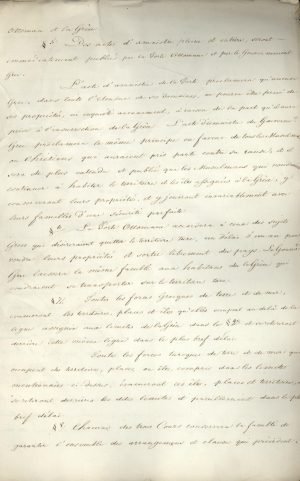 Ottoman et la Grèce
§ 5. Des actes d'amnistie pleine et entière, seront
immédiatement publiés par la Porte Ottomane et par le Gouvernement
Grec.
L'acte d'amnistie de la Porte proclamera qu'aucun
Grec, dans toute l'étendue de ses domaines, ne pourra être privé de
ses propriétés, ni inquiété aucunement, à raison de la part qu'il aura
prise à l'insurrection de la Grèce. L'acte d'amnistie du Gouvern.t
Grec proclamera le même principe en faveur de tous les Musulmans
ou Chrétiens qui auraient pris part contre sa cause, et il
sera de plus entendu et publié que les Musulmans qui voudraient
continuer à habiter le territoire et les îles assignés à la Grèce, y
conserveront leurs propriétés, et y jouiront invariablement avec
leurs familles d'une sécurité parfaite.
§ 6. La Porte Ottomane accordera à ceux des sujets
Grecs qui désireraient quitter le territoire turc, un délai d'un an pour
vendre leurs propriétés et sortir librement du pays. Le Gouver.t
Grec laissera la même faculté aux habitans de la Grèce qui
voudraient se transporter sur le territoire turc.
§ 7. Toutes les forces Grecques de terre et de mer,
évacueront les territoires, places et îles qu'elles occupent au delà de la
ligne assignée aux limites de la Grèce dans le § 2 et se retireront
derrière cette même ligne dans le plus bref délai.
Toutes les forces turques de terre et de mer qui
occupent des territoires, places ou îles compris dans les limites
mentionnées ci dessus, évacueront ces îles, places et territoires,
et se retireront derrière les dites limites et pareillement dans le plus
bref délai.
§ 8. Chacune des trois Cours conservera la faculté de
garantir l'ensemble des arrangemens et clauses qui précèdent.